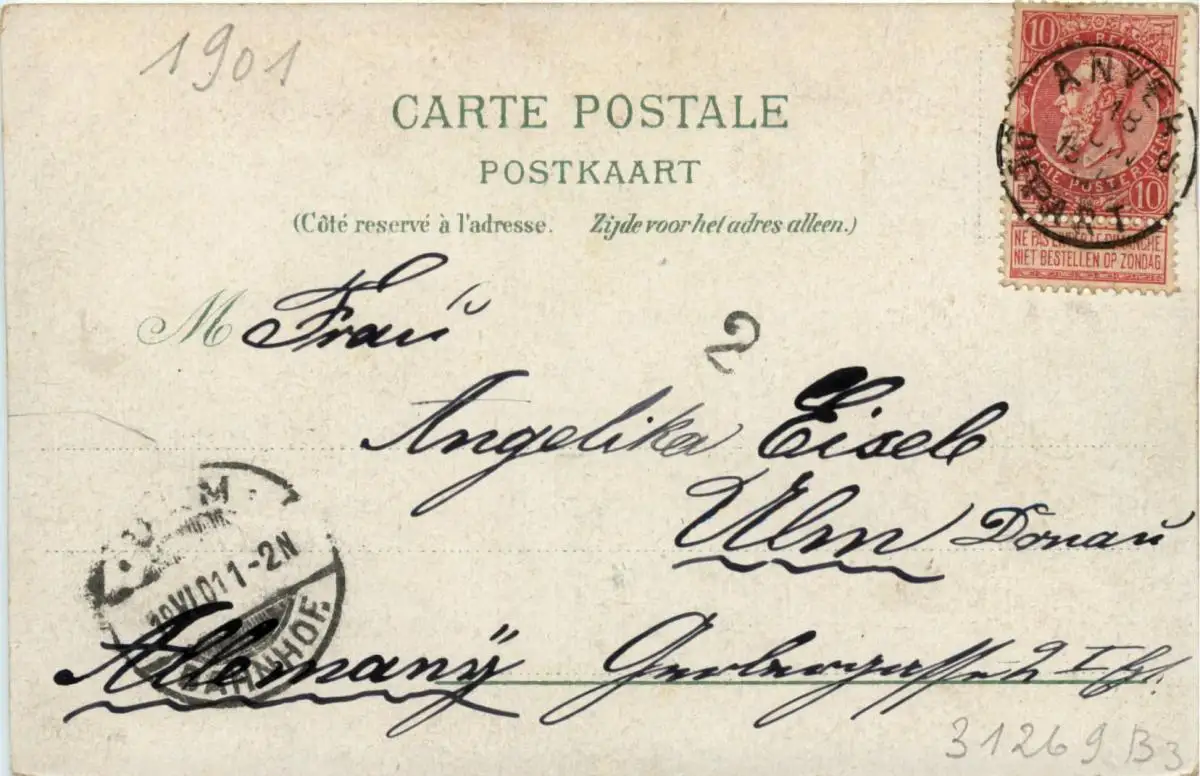 1901
CARTE POSTALE
POSTKAART
(Côté reservé à l'adresse. Zijde voor het adres alleen.)
10
10
NE PAS LIVRER LE DIMANCHE
NIET BESTELLEN OP ZONDAG
ANVERS
DÉPART
18
M Frau
2
Angelika Eisele
Ulm Donau
ULM
VI 01 1-2N
BAHNHOF.
Allemany Gerbergasse 2 I
31269 B3